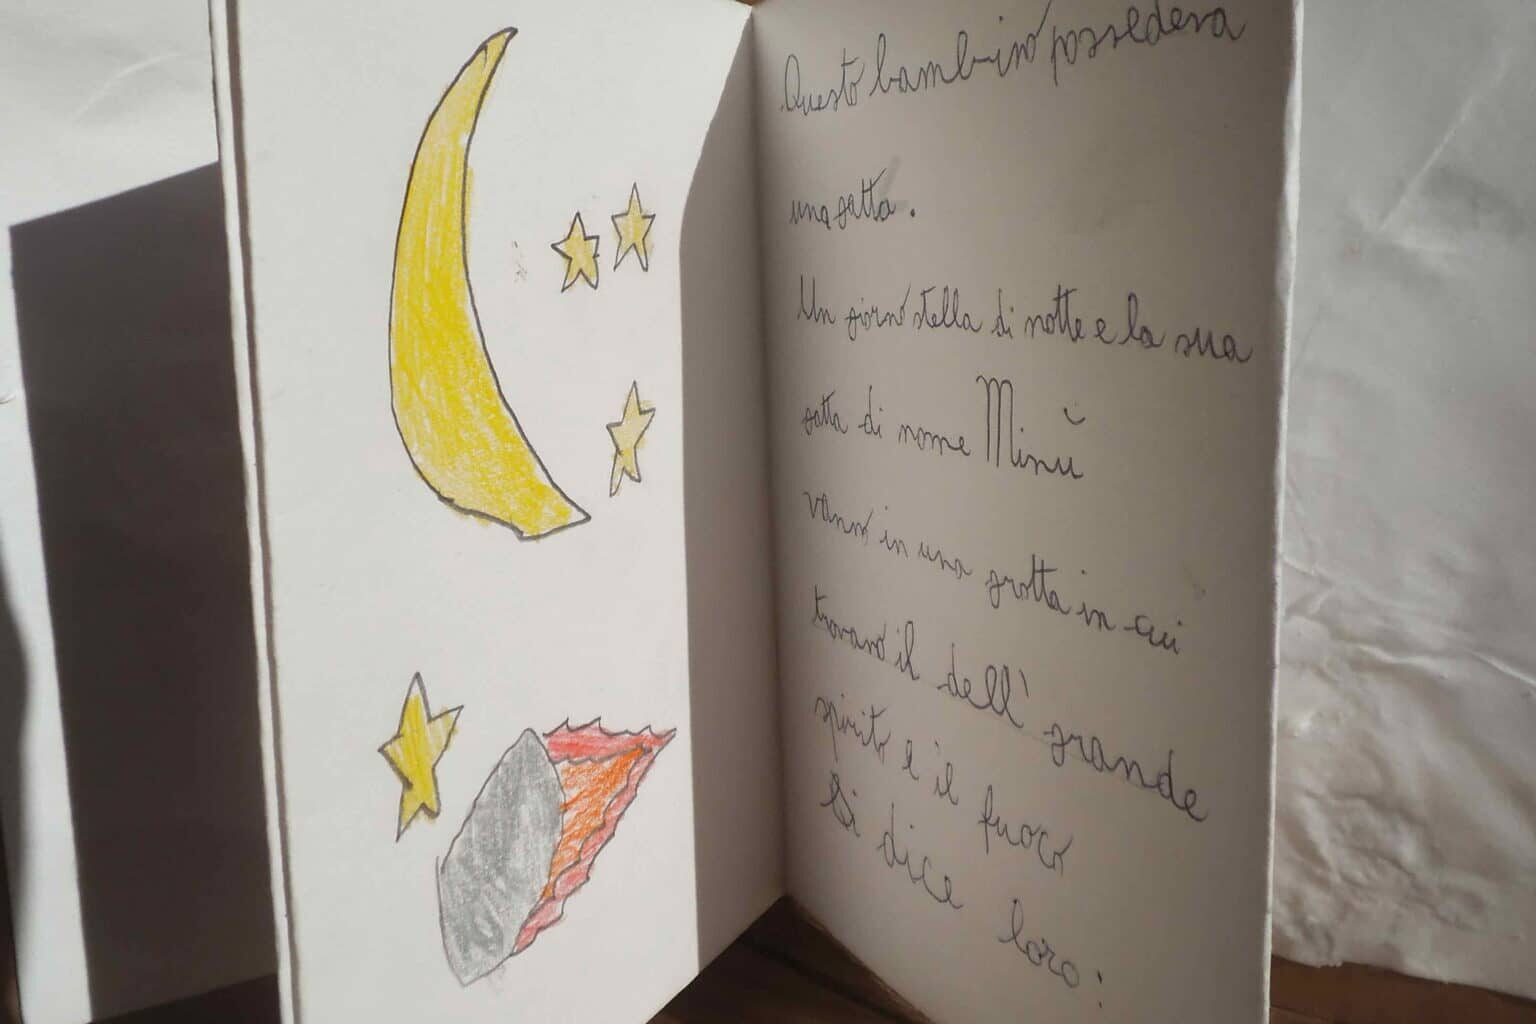 Questo bambino possedeva
una gatta.
Un giorno stella di notte e la sua
gatta di nome Minù
vanno in una grotta in cui
trovano il dell' grande
spirito e il fuoco
si dice loro: